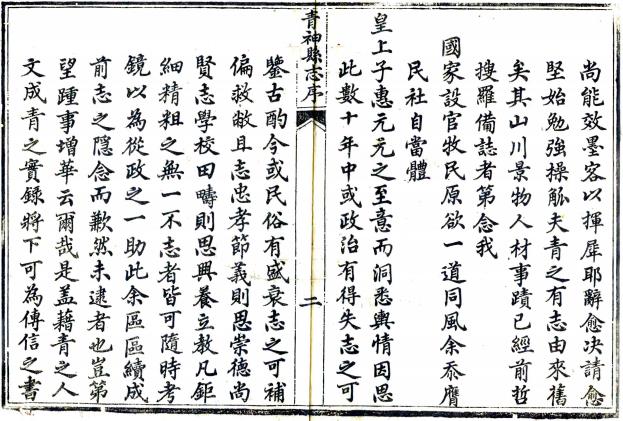 尚能效墨客以揮犀耶辭愈决請愈
堅始勉強操觚夫青之有志由來舊
矣其山川景物人材事蹟已經前哲
搜羅備誌者第念我
國家設官牧民原欲一道同風余忝膺
民社自當體
皇上子惠元元之至意而洞悉輿情因思
此數十年中或政治有得失志之可
青神縣志序
二
鑒古酌今或民俗有盛衰志之可補
偏救敝且志忠孝節義則思崇德尚
賢志學校田疇則思興養立教凡鉅
細精粗之無一不志者皆可隨時考
鏡以為從政之一助此余區區續成
前志之隱念而歉然未逮者也豈第
望踵事增華云爾哉是盖藉青之人
文成青之實録將下可為傳信之書